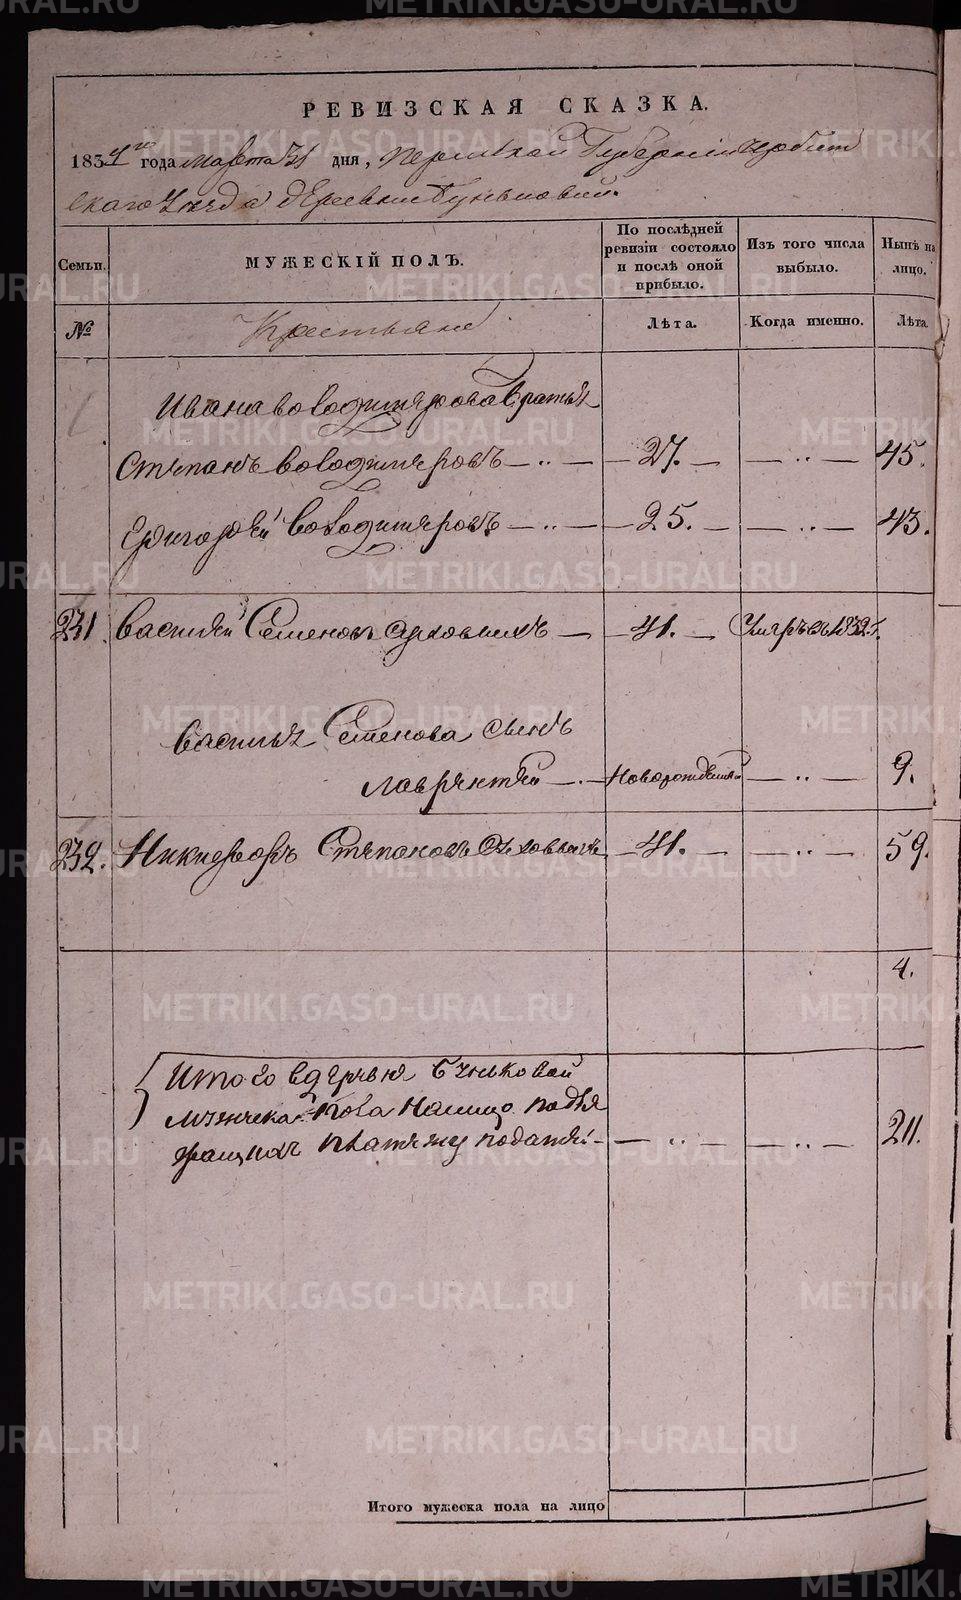 РЕВИЗСКАЯ СКАЗКА.
1834го года марта 31 дня, Пермской Губернии Ирбит
скаго Уезда деревни Буньковой.
Семьи.
МУЖЕСКІЙ ПОЛЪ.
По послѣдней ревизіи состояло и послѣ оной прибыло.
Изъ того числа выбыло.
Нынѣ на лицо.
№
Крестьяне
Лѣта.
Когда именно.
Лѣта.
Ивана володимерова братья
Степанъ володимеровъ — 27. — — 45.
Григорей володимеровъ — 25. — — 43.
231 Василей Семеновъ — 41. — Умеръ въ 1832 г.
Василья Семенова сынъ
Лаврентей — Новорожденный — 9.
232. Никифоръ Степановъ — 41. — — 59.
4.
Итого в деревне Буньковой
мужеска пола налицо подле
жащихъ платежу податей — — 211.
Итого мужеска пола на лицо
METRIKI.GASO-URAL.RU